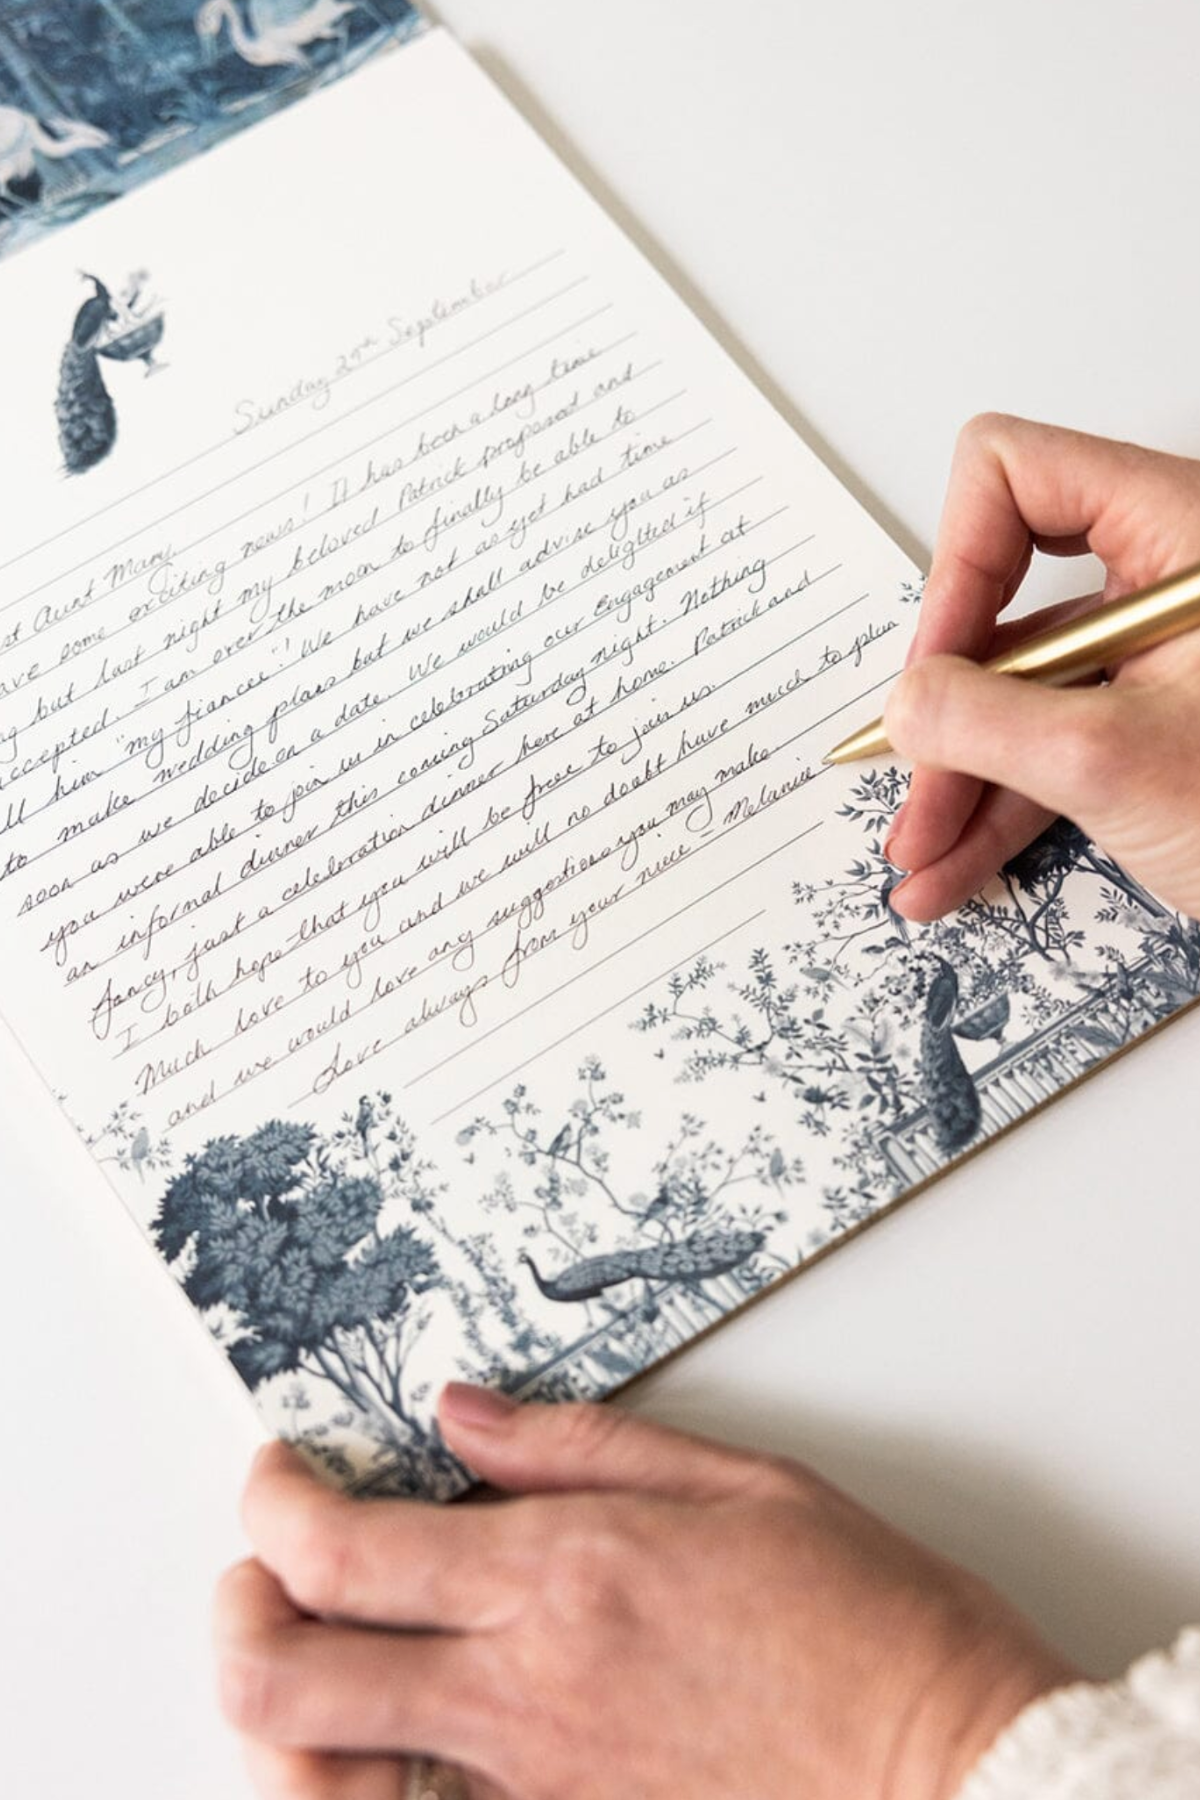 Sunday 29th September
st Aunt Mary,
ave some exciting news! It has been a long time
g but last night my beloved Patrick proposed and
accepted. I am over the moon to finally be able to
ll him "my fiancee"! We have not as yet had time
to make wedding plans but we shall advise you as
soon as we decide on a date. We would be delighted if
you were able to join us in celebrating our Engagement at
an informal dinner this coming Saturday night. Nothing
fancy, just a celebration dinner here at home. Patrick and
I both hope that you will be free to join us.
Much love to you and we will no doubt have much to plan
and we would love any suggestions you may make.
Love always from your niece - Melanie